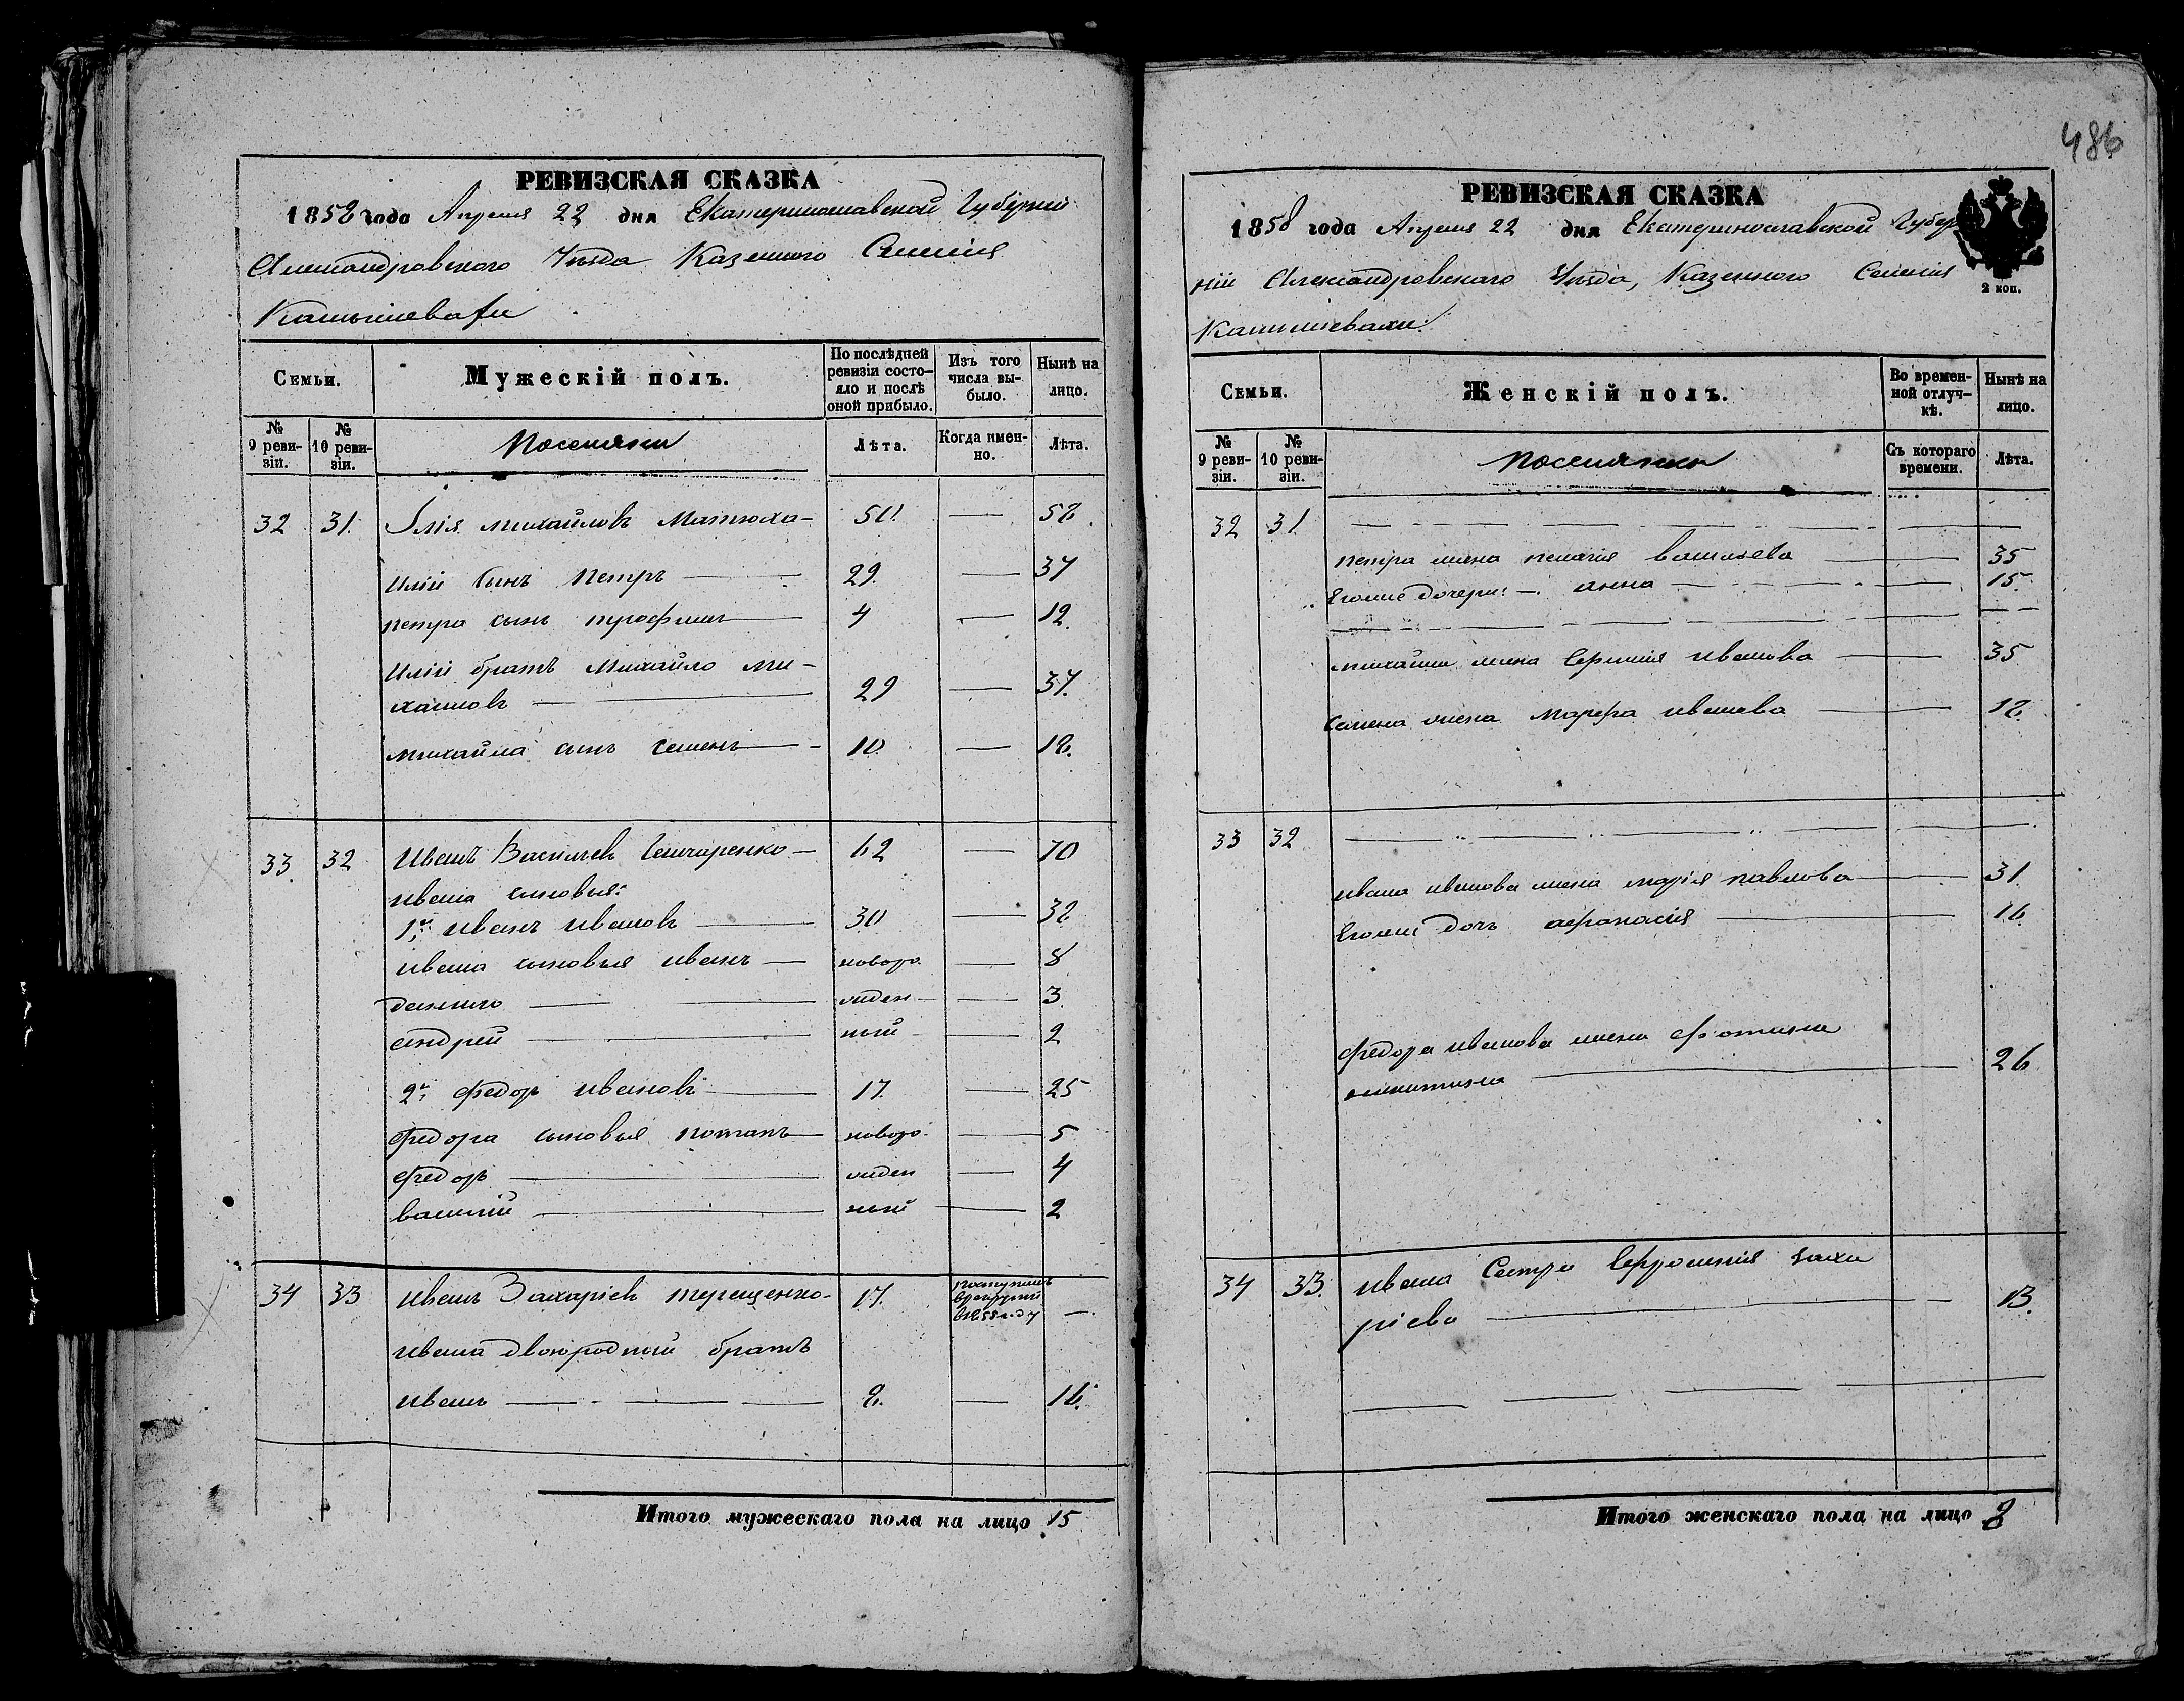 486
РЕВИЗСКАЯ СКАЗКА
1858 года Апреля 22 дня Екатеринославской Губернии
Александровского Уѣзда Казенного Селения
Камышевахи
Семьи.
Мужескій полъ.
По послѣдней ревизіи состояло и послѣ оной прибыло.
Изъ того числа выбыло.
Нынѣ на лицо.
№ 9 ревизіи.
№ 10 ревизіи.
Поселяни
Лѣта.
Когда именно.
Лѣта.
32 31. Илія михайловъ Матюха— 50. — 58.
илій Сынъ Петръ — 29. — 37
петра сынъ трофимъ — 4 — 12.
илій братъ Михайло ми-
хаиловъ — 29 — 37.
михайла сынъ семенъ — 10. — 18.
33. 32 Иванъ Васильев Гончаренко — 62 — 70
ивана сыновья:
1й иванъ ивановъ — 30 — 38
ивана сыновья иванъ — новоро — 8
данило — жден — 3.
андрей — ный — 2
2й федоръ ивановъ — 17. — 25
федора сыновья потапъ — новоро — 5
федоръ — жден — 4
василий — ный — 2
34 33 иванъ Захаріев терещенко — 17. поступилъ в рекруты в 1855 году —
ивана двоюродный братъ
иванъ — 8. — 16.
Итого мужескаго пола на лицо 15
РЕВИЗСКАЯ СКАЗКА
1858 года Апреля 22 дня Екатеринославской Губер
ніи Александровскаго Уѣзда, Казенного Селенія
Камышевахи
2 коп.
Семьи.
Женскій полъ.
Во временной отлучкѣ.
Нынѣ на лицо.
№ 9 ревизіи.
№ 10 ревизіи.
поселянки
Съ котораго времени.
Лѣта.
32 31. —
петра жена пелагія васильева — 35
Егоже дочери: — анна — 15.
михайла жена ивашова — 35
семена жена Марфа ивашева — 18.
33 32 —
ивана иванова жена марія павлова — 31
Егоже дочь афанасія — 16.
федора иванова жена фотина
никитина — 26
34 33. ивана Сестра Ефросинія заха
ріева — 13.
Итого женскаго пола на лицо 8